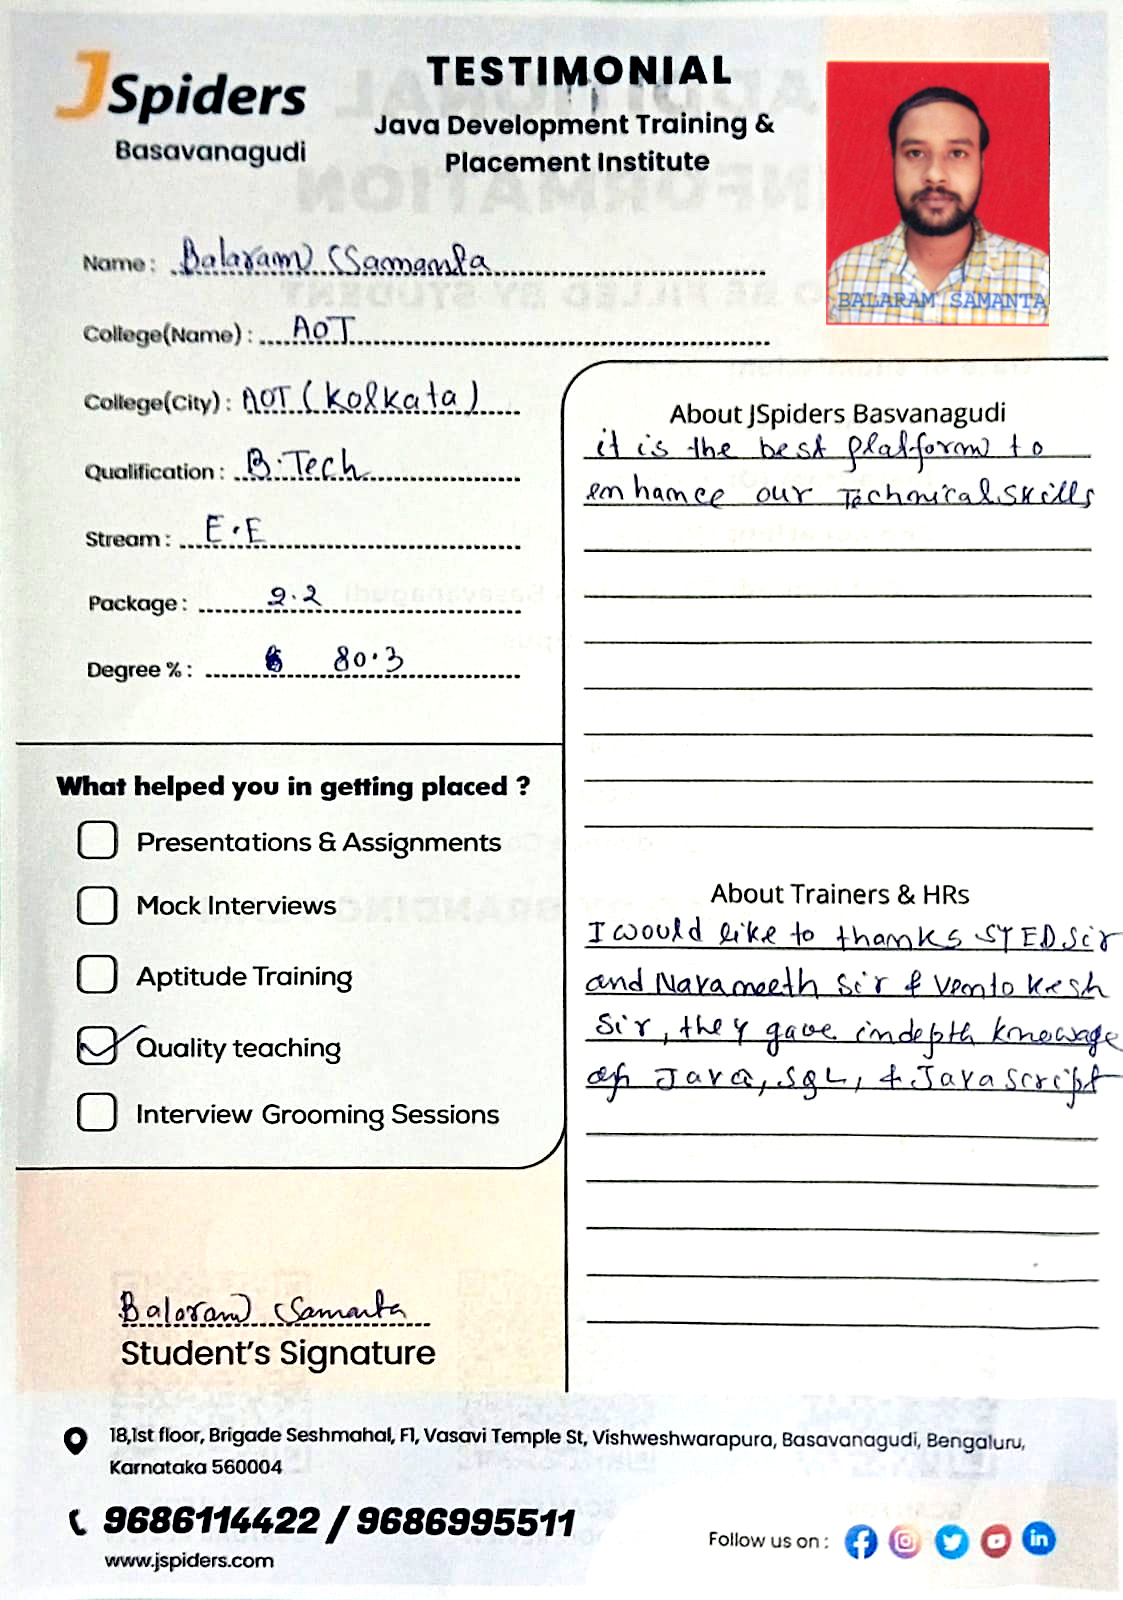 JSpiders
Basavanagudi
TESTIMONIAL
Java Development Training &
Placement Institute
BALARAM SAMANTA
Name : Balaram Samanta
College(Name) : AOT
College(City) : AOT (Kolkata)
Qualification : B.Tech
Stream : E.E
Package : 2.2
Degree % : 80.3
What helped you in getting placed ?
Presentations & Assignments
Mock Interviews
Aptitude Training
Quality teaching
Interview Grooming Sessions
Balaram Samanta
Student's Signature
About JSpiders Basvanagudi
it is the best platform to
enhance our Technical skills
About Trainers & HRs
I would like to thanks SYED Sir
and Navaneeth Sir & Ventokesh
Sir, they gave indepth knowage
of Java, SQL, & Javascript
18,1st floor, Brigade Seshmahal, F1, Vasavi Temple St, Vishweshwarapura, Basavanagudi, Bengaluru,
Karnataka 560004
9686114422 / 9686995511
www.jspiders.com
Follow us on :